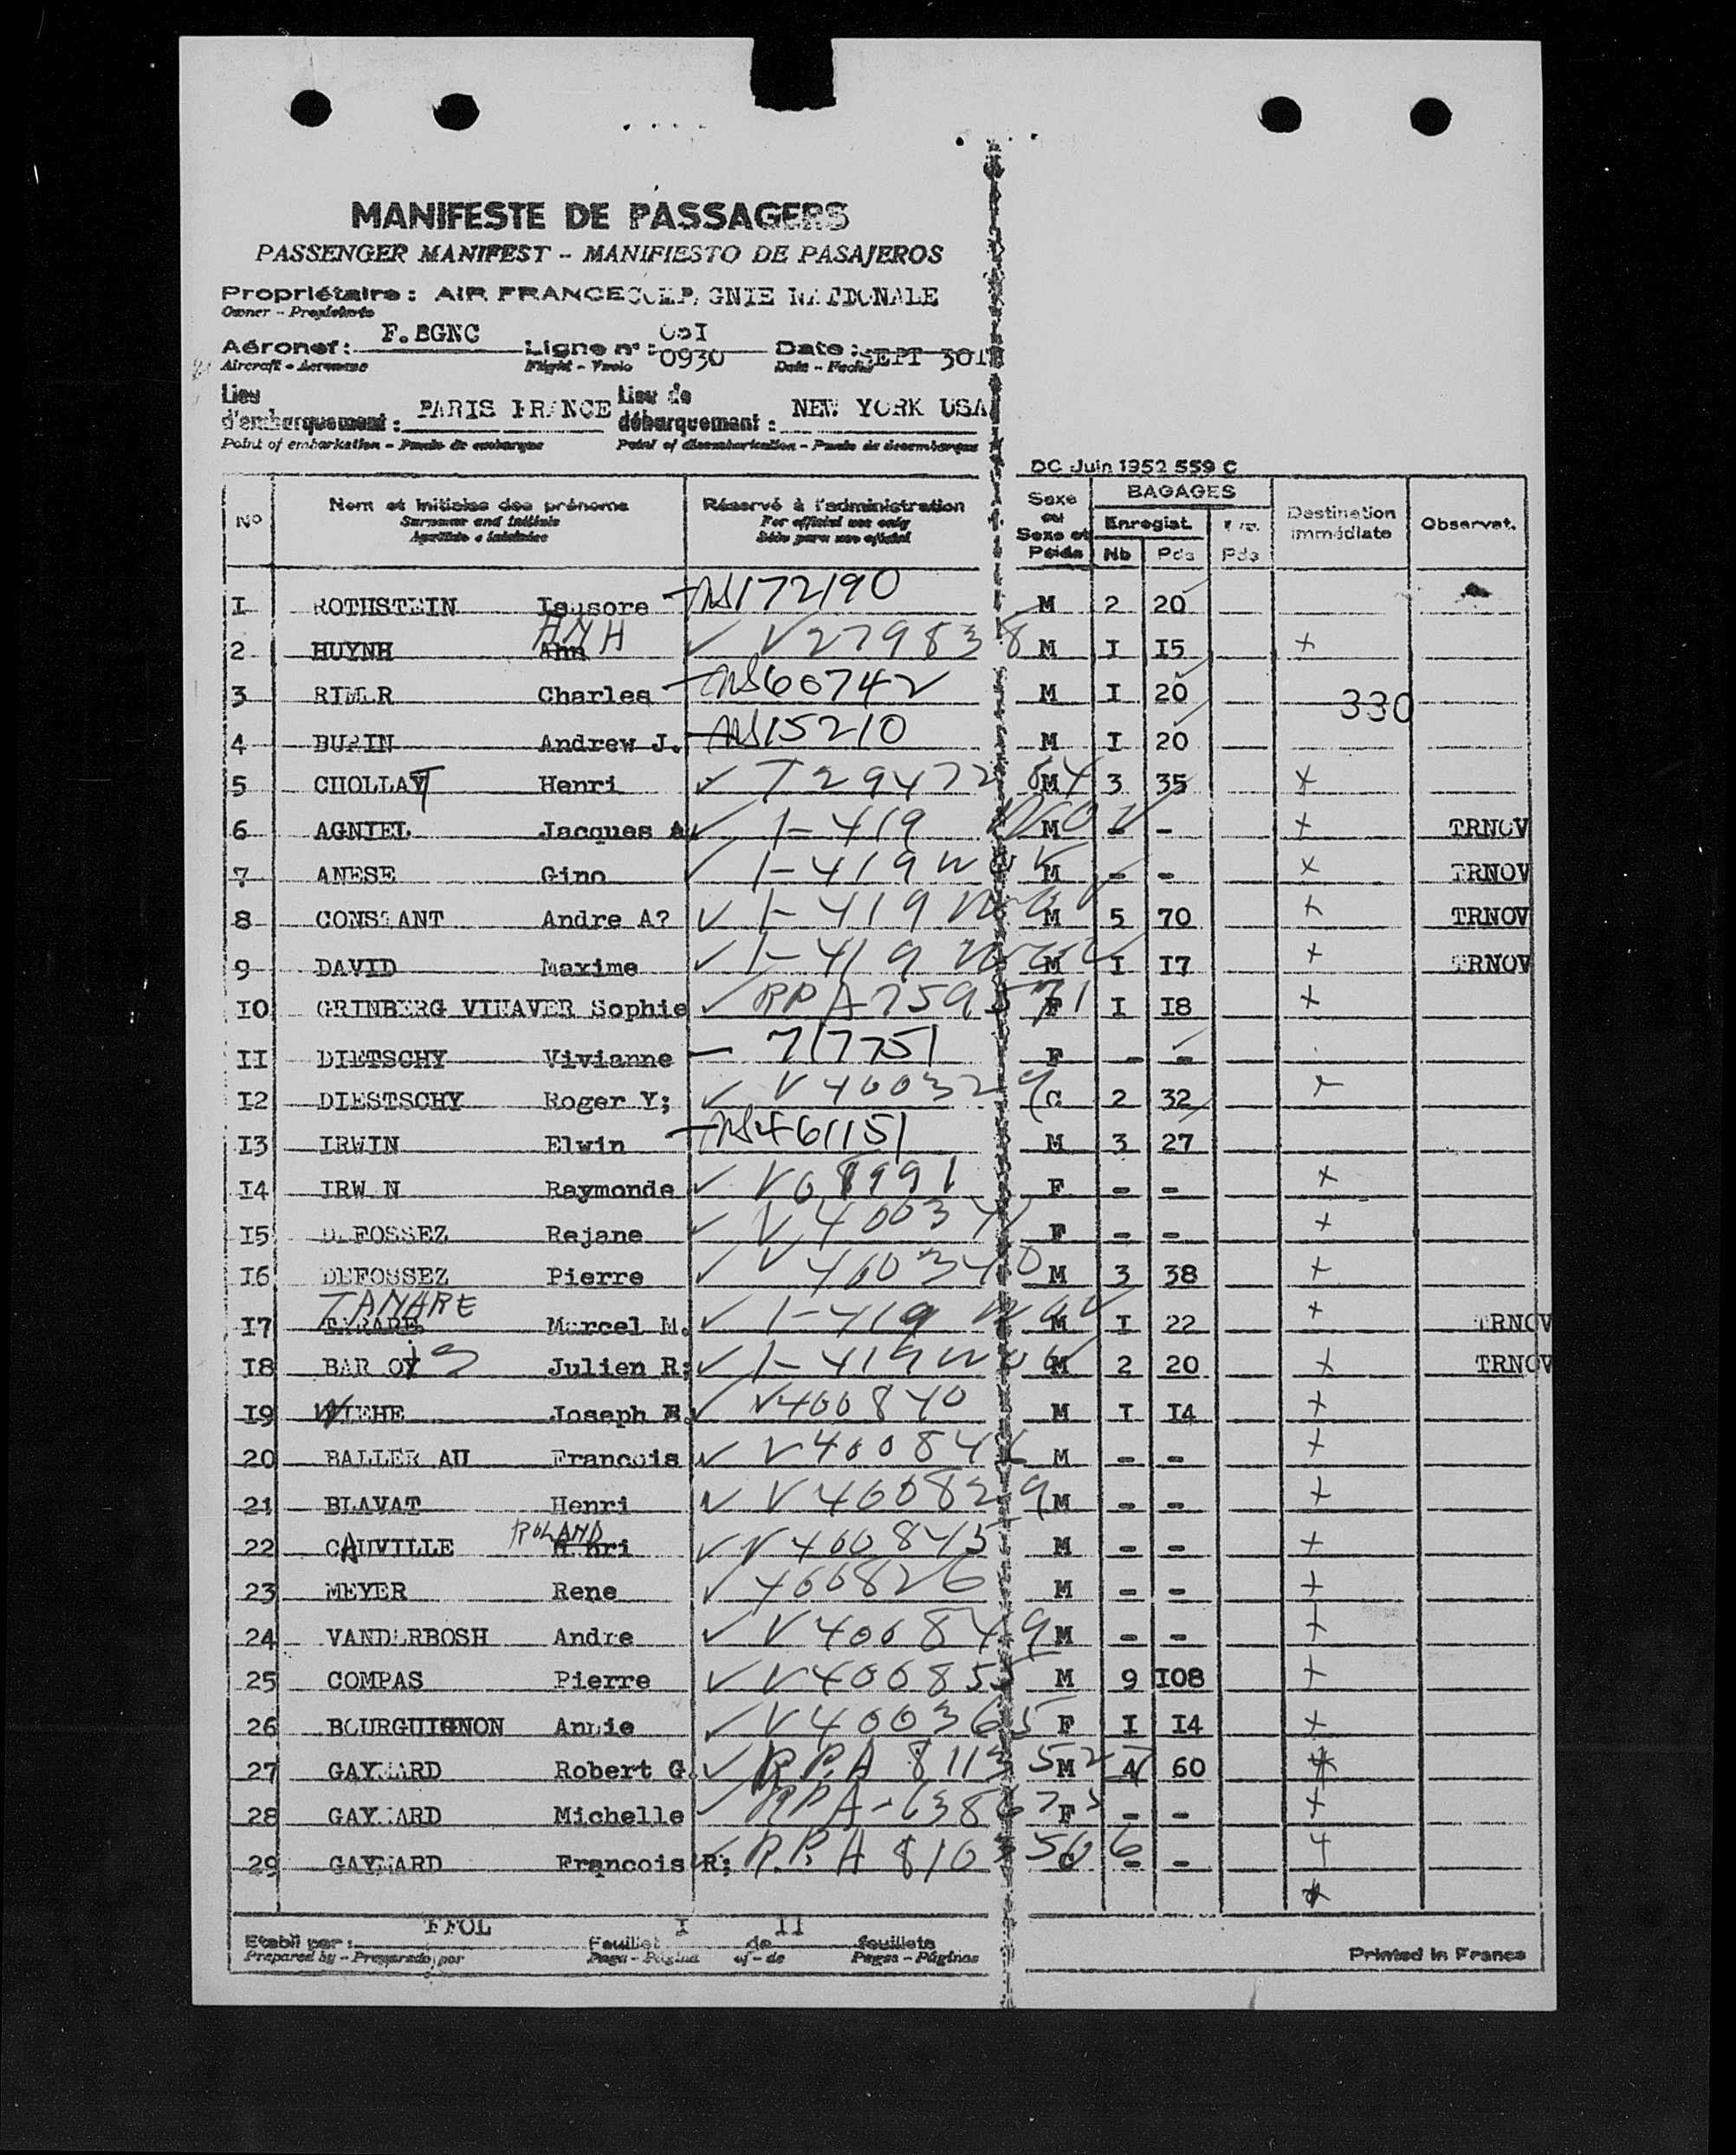 MANIFESTE DE PASSAGERS
PASSENGER MANIFEST - MANIFIESTO DE PASAJEROS
Propriétaire : AIR FRANCE NATIONALE
Owner - Propietario
Aéronef : F.BGNC Ligne n° : 0930 Date : SEPT 30
Aircraft - Aeronave Flight - Vuelo Date - Fecha
Lieu d'embarquement : PARIS FRANCE Lieu de débarquement : NEW YORK USA
Point of embarkation - Punto de embarque Point of disembarkation - Punto de desembarque
DC Juin 1952 559 C
N° Nom et initiales des prénoms Réservé à l'administration Sexe ou Sexe et Poids BAGAGES Destination immédiate Observat.
Surname and initials For official use only Enregist. Nb Pds Pds
Apellido e iniciales Sólo para uso oficial
I ROTHSTEIN Isusore 172190 M 2 20
2 HUYNH Ahn ANH V279838 M I I5 x
3 Charles 60742 M I 20
330
4 Andrew J. 15210 M I 20
5 CHOLLAT Henri M 3 35 x
6 AGNIEL Jacques A. 1-419 M - - x TRNOV
7 ANESE Gino 1-419 M - - x TRNOV
8 CONSTANT Andre A? 1-419 M 5 70 x TRNOV
9 DAVID Maxime 1-419 M I I7 x TRNOV
IO GRINBERG VINAVER Sophie RPA759571 F I I8 x
II DIETSCHY Vivianne 717751 F - -
I2 DIESTSCHY Roger Y; V400329 C 2 32
I3 IRWIN Elwin 461151 M 3 27
I4 IRW N Raymonde F - - x
I5 D FOSSEZ Rejane F - - x
I6 DEFOSSEZ Pierre V400340 M 3 38 x
I7 TANARE Marcel M. 1-419 M I 22 x TRNOV
I8 Julien R; 1-419 M 2 20 x TRNOV
I9 WIEHE Joseph E. V400840 M I I4 x
20 BALLER AU Francois M - - x
21 BLAVAT Henri V400829 M - - x
22 CAUVILLE ROLAND V400845 M - - x
23 MEYER Rene 400826 M - - x
24 VANDERBOSH Andre V400849 M - - x
25 COMPAS Pierre V400855 M 9 I08 x
26 BOURGUIGNON Annie V400365 F I I4 x
27 GAYMARD Robert G. RPA 811352 M 4 60 x
28 GAYMARD Michelle F - - x
29 GAYMARD Francois R; R.P.A 8103506 C - - x
Etabli par : FFOL Feuillet I de II feuillets
Prepared by - Preparado por Page - Página of - de Pages - Páginas
Printed in France